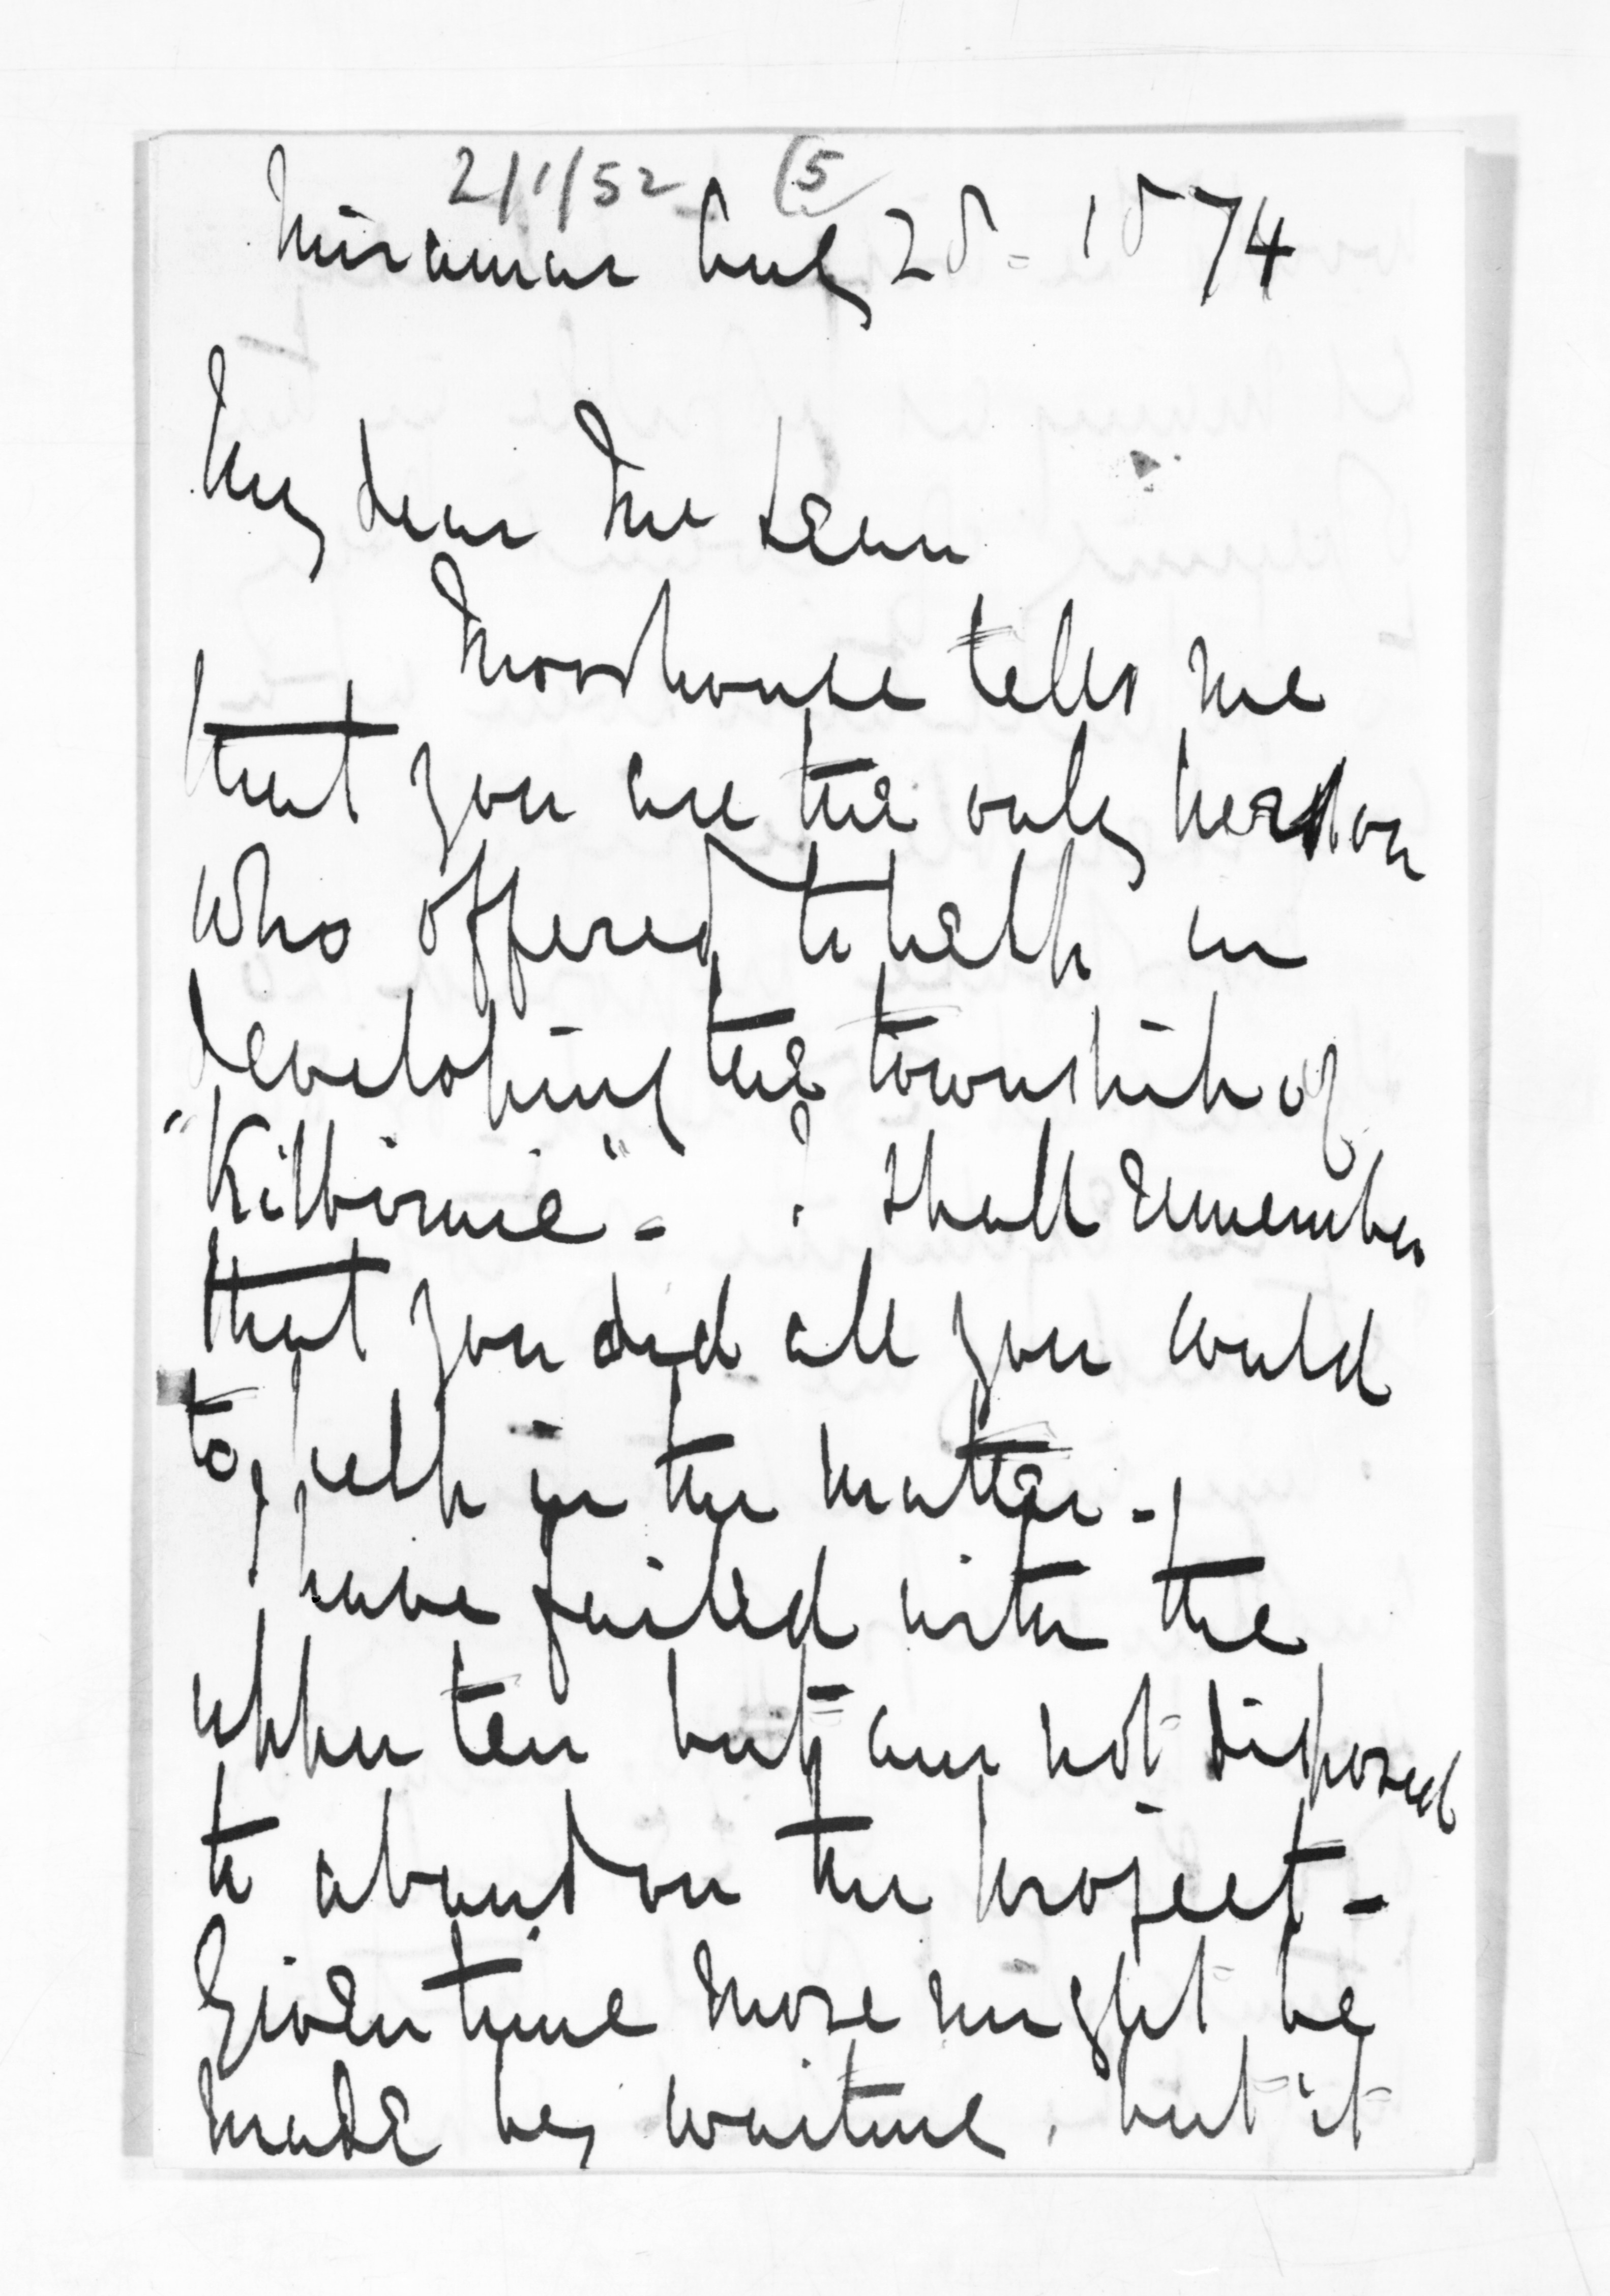 2/1/52 (5
Miramar Augt 28 - 1874
My dear McLean
Moorhouse tells me
that you are the only person
who offered to help in
developing the township of
"Kilbirnie" - I shall remember
that you did all you could
to help in the matter -
I have failed with the
upper ten but am not disposed
to abandon the project -
Given time more might be
made by waiting, but it